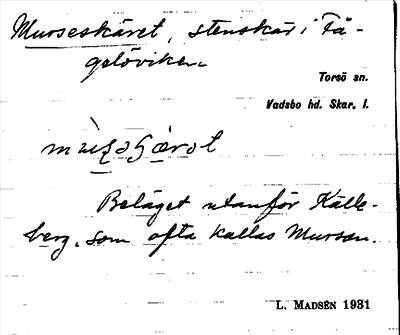 Murseskäret, stenskär i Få-
gelöviken
Torsö sn.
Vadsbo hd. Skar. l.
Beläget utanför Kålle-
berg, som ofta kallas Mursen.
L. MADSÉN 1931